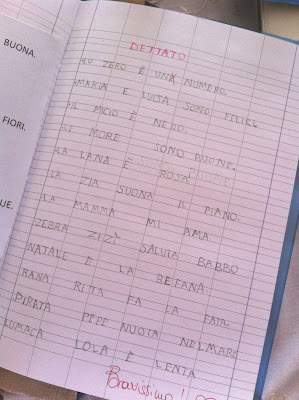 BUONA.
FIORI.
UE.
DETTATO
LO ZERO È UN NUMERO.
MARIA E LUISA SONO FELICI.
IL MICIO È NERO.
LE MORE SONO BUONE.
LA LANA È ROSA.
LA ZIA SUONA IL PIANO.
LA MAMMA MI AMA.
ZEBRA ZIZÌ SALUTA BABBO
NATALE E LA BEFANA.
RANA RITA FA LA FATA.
PIRATA PEPE NUOTA NEL MARE
LUMACA LOLA È LENTA
Bravissimo!